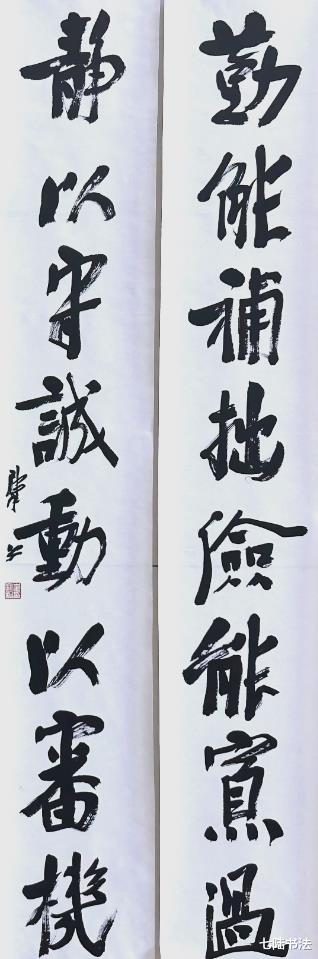 勤能補拙儉能寡過
靜以守誠動以審機
七幡书法